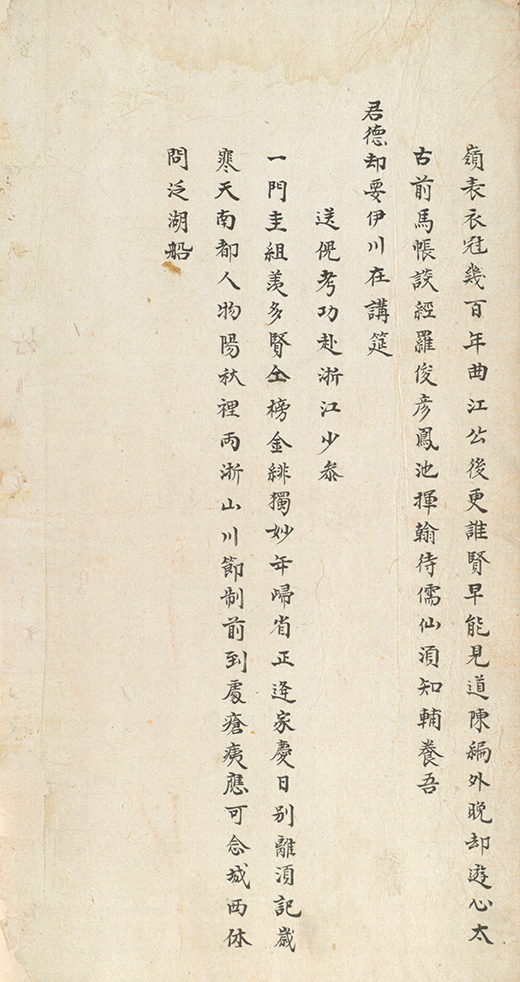 嶺表衣冠幾百年曲江公後更誰賢早能見道陳編外晚却遊心太
古前馬帳談經羅俊彦鳳池揮翰待儒仙須知輔養吾
君德却要伊川在講筵
送倪考功赴浙江少叅
一門圭組羡多賢仝榜金緋獨妙年歸省正逢家慶日別離須記歲
寒天南都人物陽秋裡两浙山川節制前到處瘡痍應可念城西休
問泛湖船